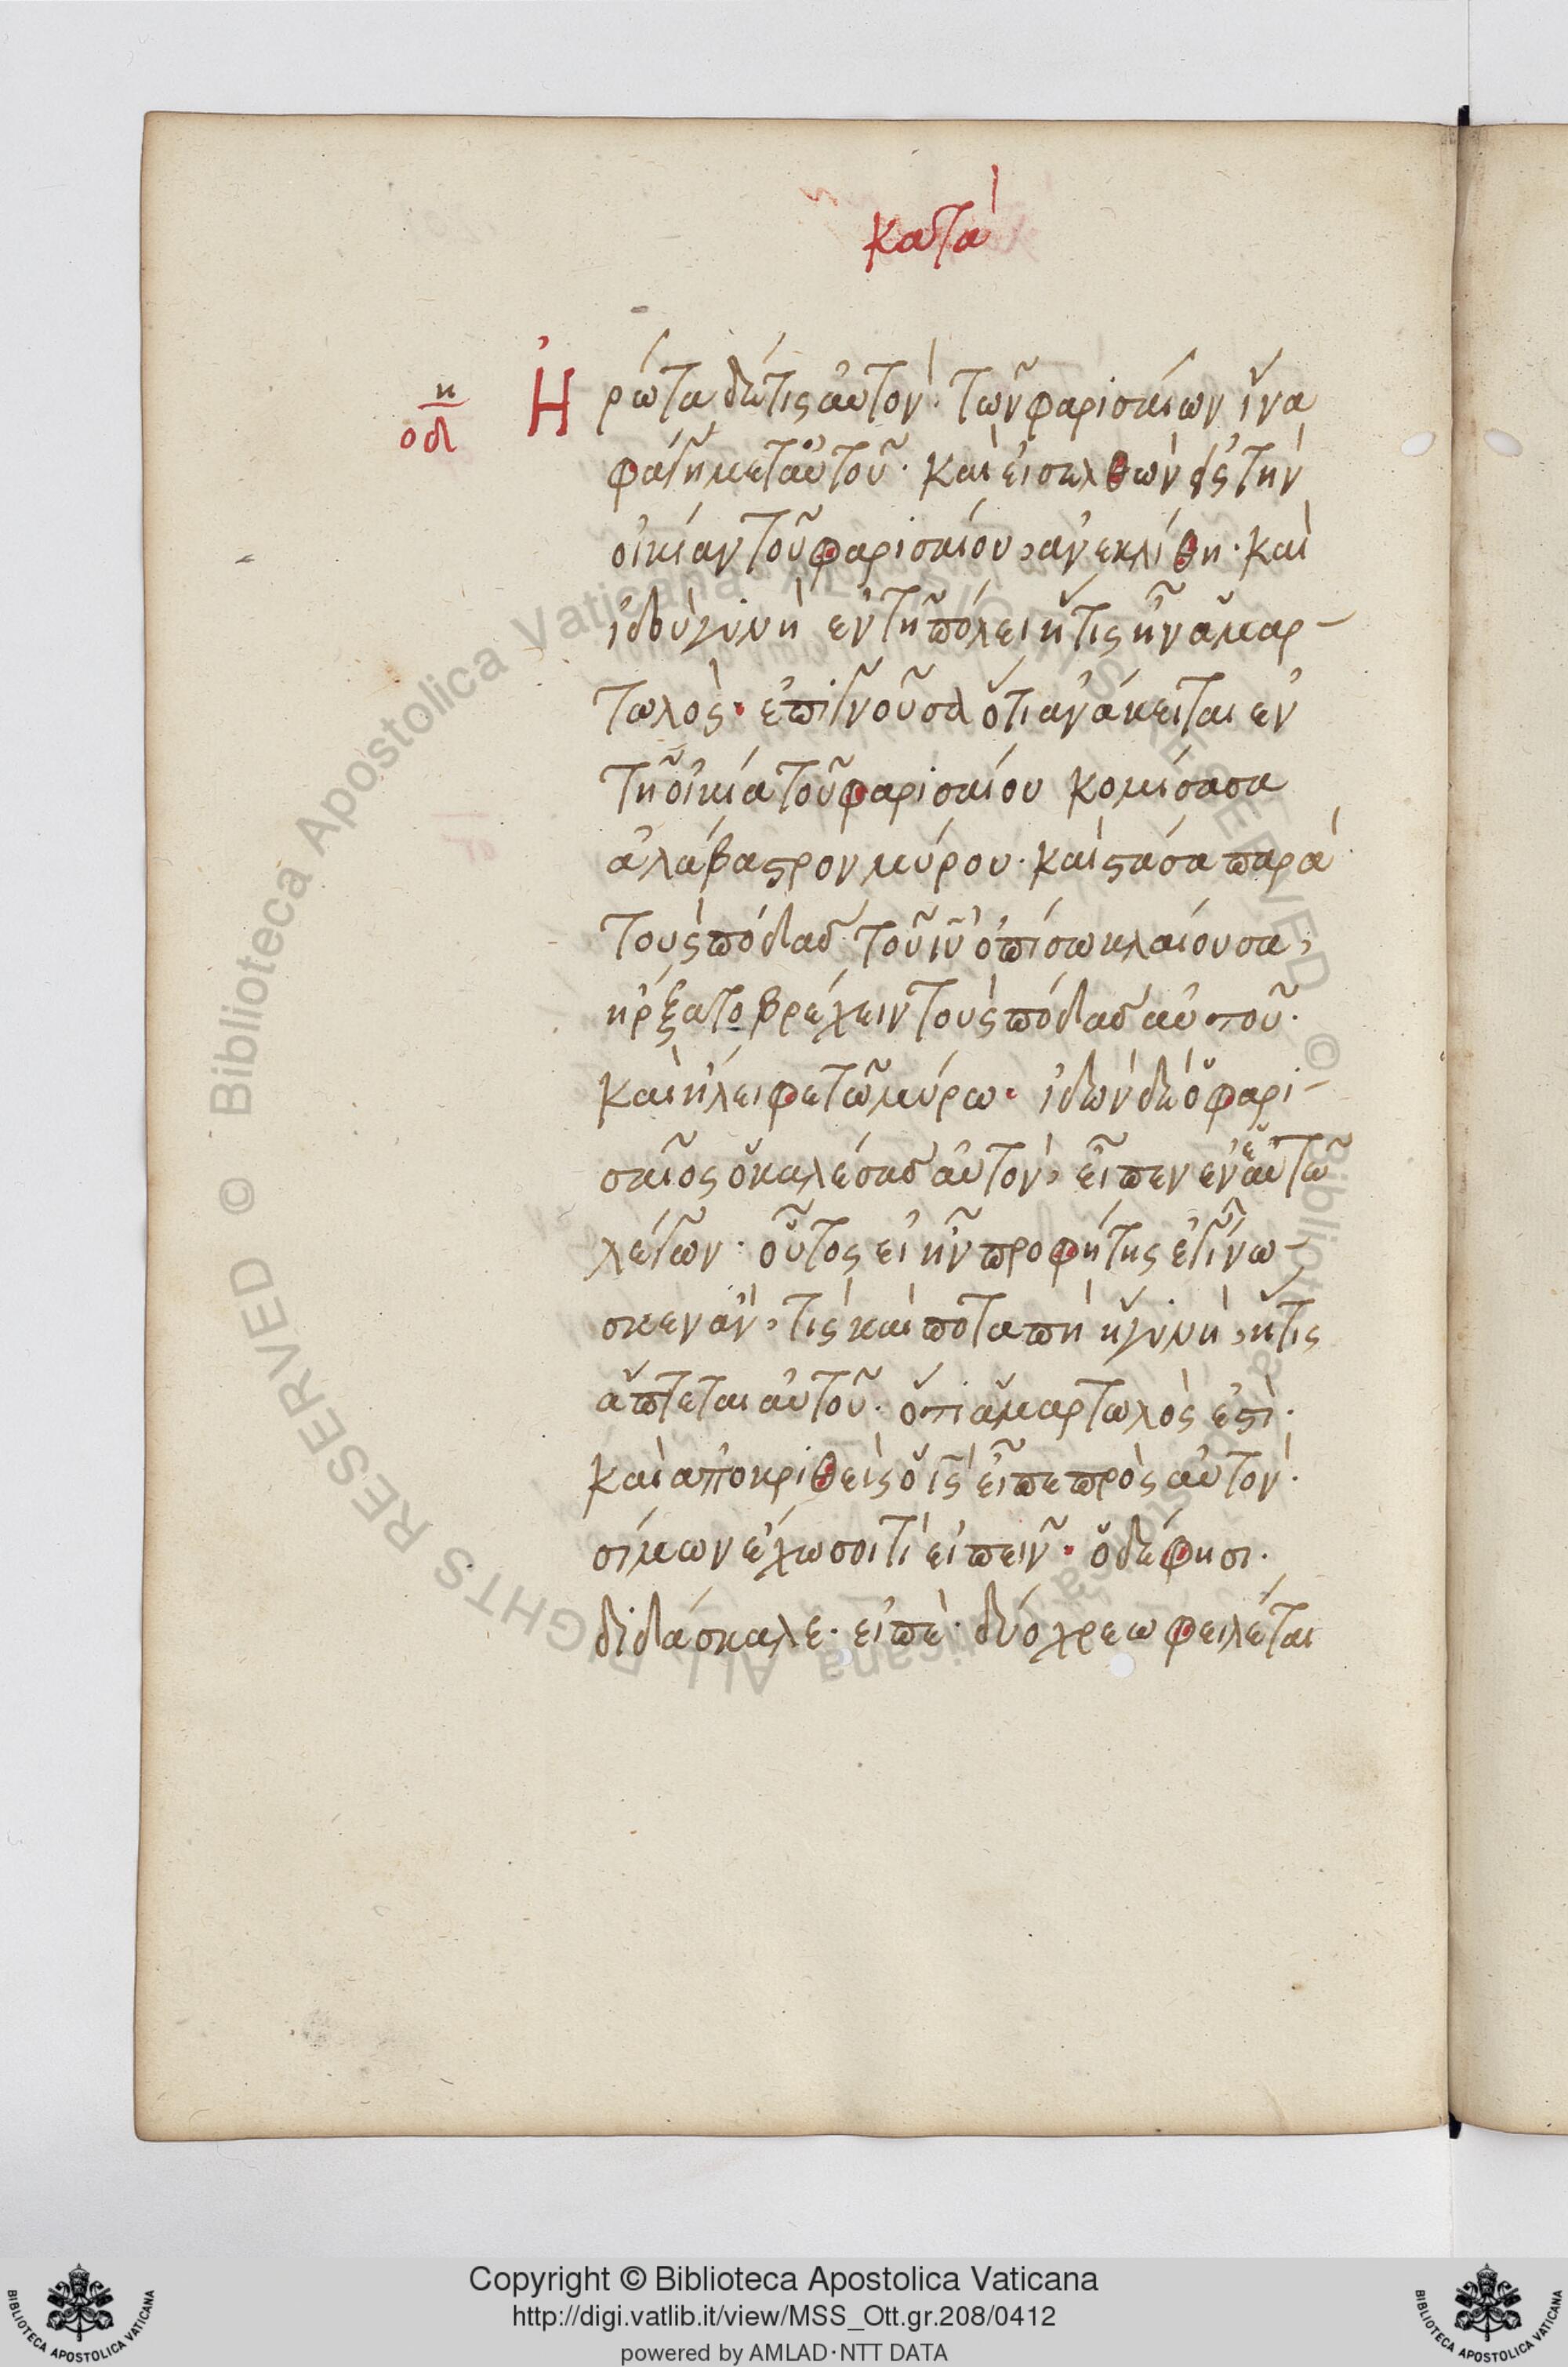 κατὰ
η
οδ
Ἠρώτα δέ τις αὐτὸν· τῶν φαρισαίων ἵνα
φάγῃ μετ αὐτοῦ· καὶ εἰσελθὼν εἰς τὴν
οἰκίαν τοῦ φαρισαίου, ἀνεκλίθη· καὶ
ἰδοὺ γυνὴ ἐν τῇ πόλει ἥτις ἦν ἁμαρ-
τωλὸς· ἐπιγνοῦσα ὅτι ἀνάκειται ἐν
τῇ οἰκία τοῦ φαρισαίου κομίσασα
ἀλάβαστρον μύρου· καὶ στάσα παρὰ
τοὺς πόδας τοῦ ἰυ ὀπίσω κλαίουσα,
ἤρξατο βρέχειν τοὺς πόδας αὐτοῦ·
καὶ ἤλειφε τῶ μύρω· ἰδὼν δὲ ὁ φαρι-
σαῖος ὁ καλέσας αὐτὸν, εἶπεν ἐν ἑαυτῶ
λέγων· οὗτος εἰ ἦν προφήτης ἐγίνω-
σκεν ἂν, τίς καὶ ποταπὴ ἡ γυνὴ, ἥτις
ἅπτεται αὐτοῦ· ὅτι ἁμαρτωλὸς ἐστὶ·
καὶ ἀποκριθεὶς ὁ ις εἶπε πρὸς αὐτὸν·
σίμων ἔχω σοι τὶ εἰπεῖν· ὁ δέ φησι·
διδάσκαλε· εἰπὲ· δύο χρεωφειλέται
Copyright © Biblioteca Apostolica Vaticana
http://digi.vatlib.it/view/MSS_Ott.gr.208/0412
powered by AMLAD·NTT DATA
BIBLIOTECA APOSTOLICA VATICANA
BIBLIOTECA APOSTOLICA VATICANA
© Biblioteca Apostolica Vaticana ALL RIGHTS RESERVED